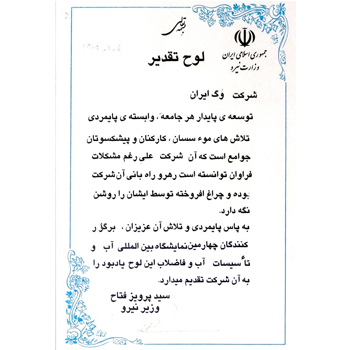 بسمه تعالی
جمهوری اسلامی ایران
وزارت نیرو
لوح تقدیر
شرکت وگ ایران
توسعه ی پایدار هر جامعه، وابسته ی پایمردی
تلاش های موء سسان، کارکنان و پیشکسوتان
جوامع است که آن شرکت علی رغم مشکلات
فراوان توانسته است رهرو راه بانی آن شرکت
بوده و چراغ افروخته توسط ایشان را روشن
نگه دارد.
به پاس پایمردی و تلاش آن عزیزان، برگز ر
کنندگان چهارمین نمایشگاه بین المللی آب و
تأسیسات آب و فاضلاب این لوح یادبود را
به آن شرکت تقدیم میدارد.
سید پرویز فتاح
وزیر نیرو